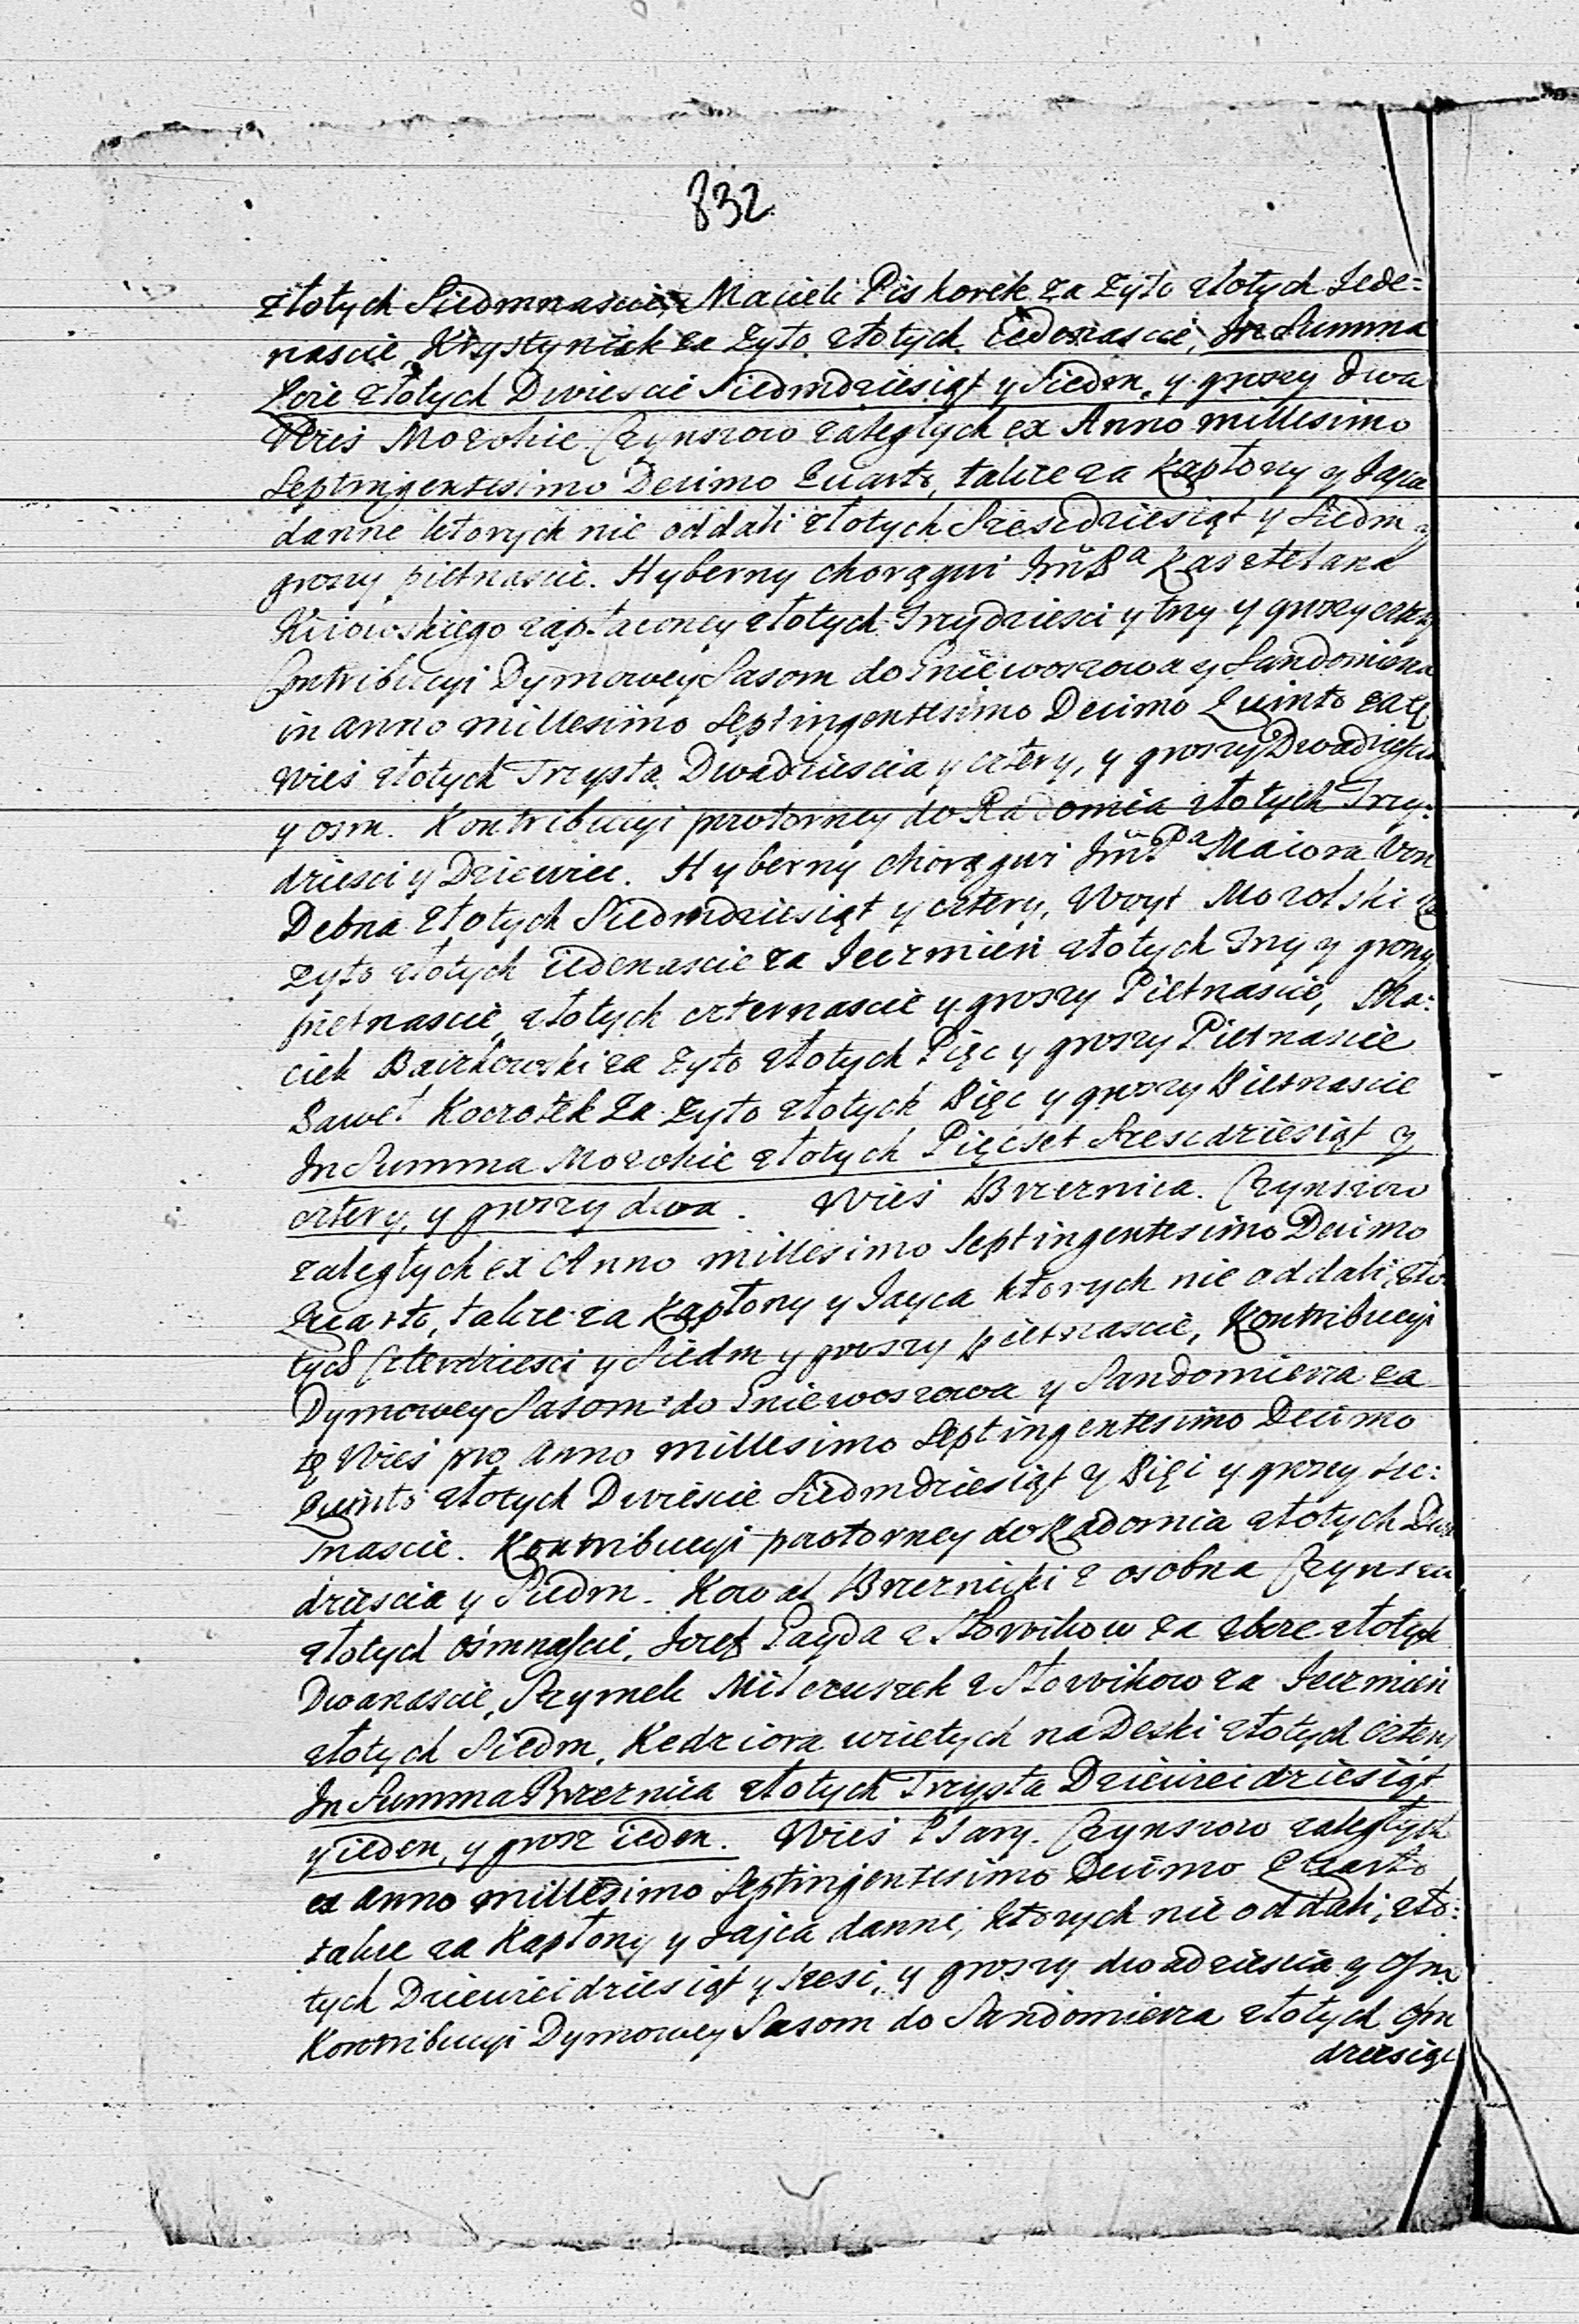 832
złotych Siedmnascie, Maciek Piskorek za Zyto złotych Jede=
nascie, Krystyniak za Zyto złotych iedenascie, In Summa
złotych Dwiescie Siedmdziesiąt y Siedm, y groszy dwa
Wies Mozolice Czynszow zaległych ex Anno millesimo
Septingentesimo Decimo Quarto, takze za Kapłony y Jayca
danne ktorych nie oddali złotych Szescdziesiąt y Siedm y
groszy pietnascie. Hyberny chorągwi JmPa Kasztelana
Kiiowskiego zapłaconey złotych Trzydziesci y trzy y groszy cztery
Contribucyi Dymowey Sasom do Gniewoszowa y Sandomirza
in anno millesimo Septingentesimo Decimo Quinto za tę
Wies złotych Trzysta Dwadziescia y cztery, y groszy Dwadziescia
y osm. Kontribucyi powtorney do Radomia złotych Trzy=
dziesci y Dziewiec. Hyberny chorągwi JmPa Maiora Von
Debna złotych Siedmdziesiąt y cztery, Woyt Mozolski za
zyto złotych iedenascie za Jeczmien złotych Trzy y groszy
pietnascie, złotych czternascie y groszy Pietnascie, Ma=
ciek Baczkowski za zyto złotych Pięc y groszy Pietnascie
Paweł Koczotek za zyto złotych Pięc y groszy Pietnascie
In Summa Mozolice złotych Pięcset Szescdziesiąt y
cztery, y groszy dwa. Wies Brzeznica. Czynszow
zaległych ex Anno millesimo Septingentesimo Decimo
Quarto, takze za Kapłony y Jayca ktorych nie oddali, zło=
tych Czterdziesci y Siedm y groszy pietnascie, Kontribucyi
Dymowey Sasom do Gniewoszowa y Sandomierza za
tę Wies pro Anno millesimo Septingentesimo Decimo
Quinto złotych Dwiescie Siedmdziesiąt y Pięc y groszy szes=
nascie. Kontribucyi powtorney do Radomia złotych Dwa
dziescia y Siedm. Kowal Brzeznicki z osobna Czynszu
złotych ośmnascie, Jozef Gayda z Słowikow za zboze złotych
Dwanascie, Szymek Milczuszek z Słowikow za Jeczmien
złotych Siedm, Kedziora wzietych na Deski złotych cztery
In Summa Brzeznica złotych Trzysta Dziewiecdziesiąt
y ieden, y grosz ieden. Wies Psary. Czynszow zaległych
ex anno millesimo Septingentesimo Decimo Quarto
takze za Kapłony y Jajca danne, ktorych nie oddali, zło=
tych Dziewiecdziesiąt y szesc, y groszy dwadziescia y osm
Kontribucyi Dymowey Sasom do Sandomierza złotych osm
dziesiąt